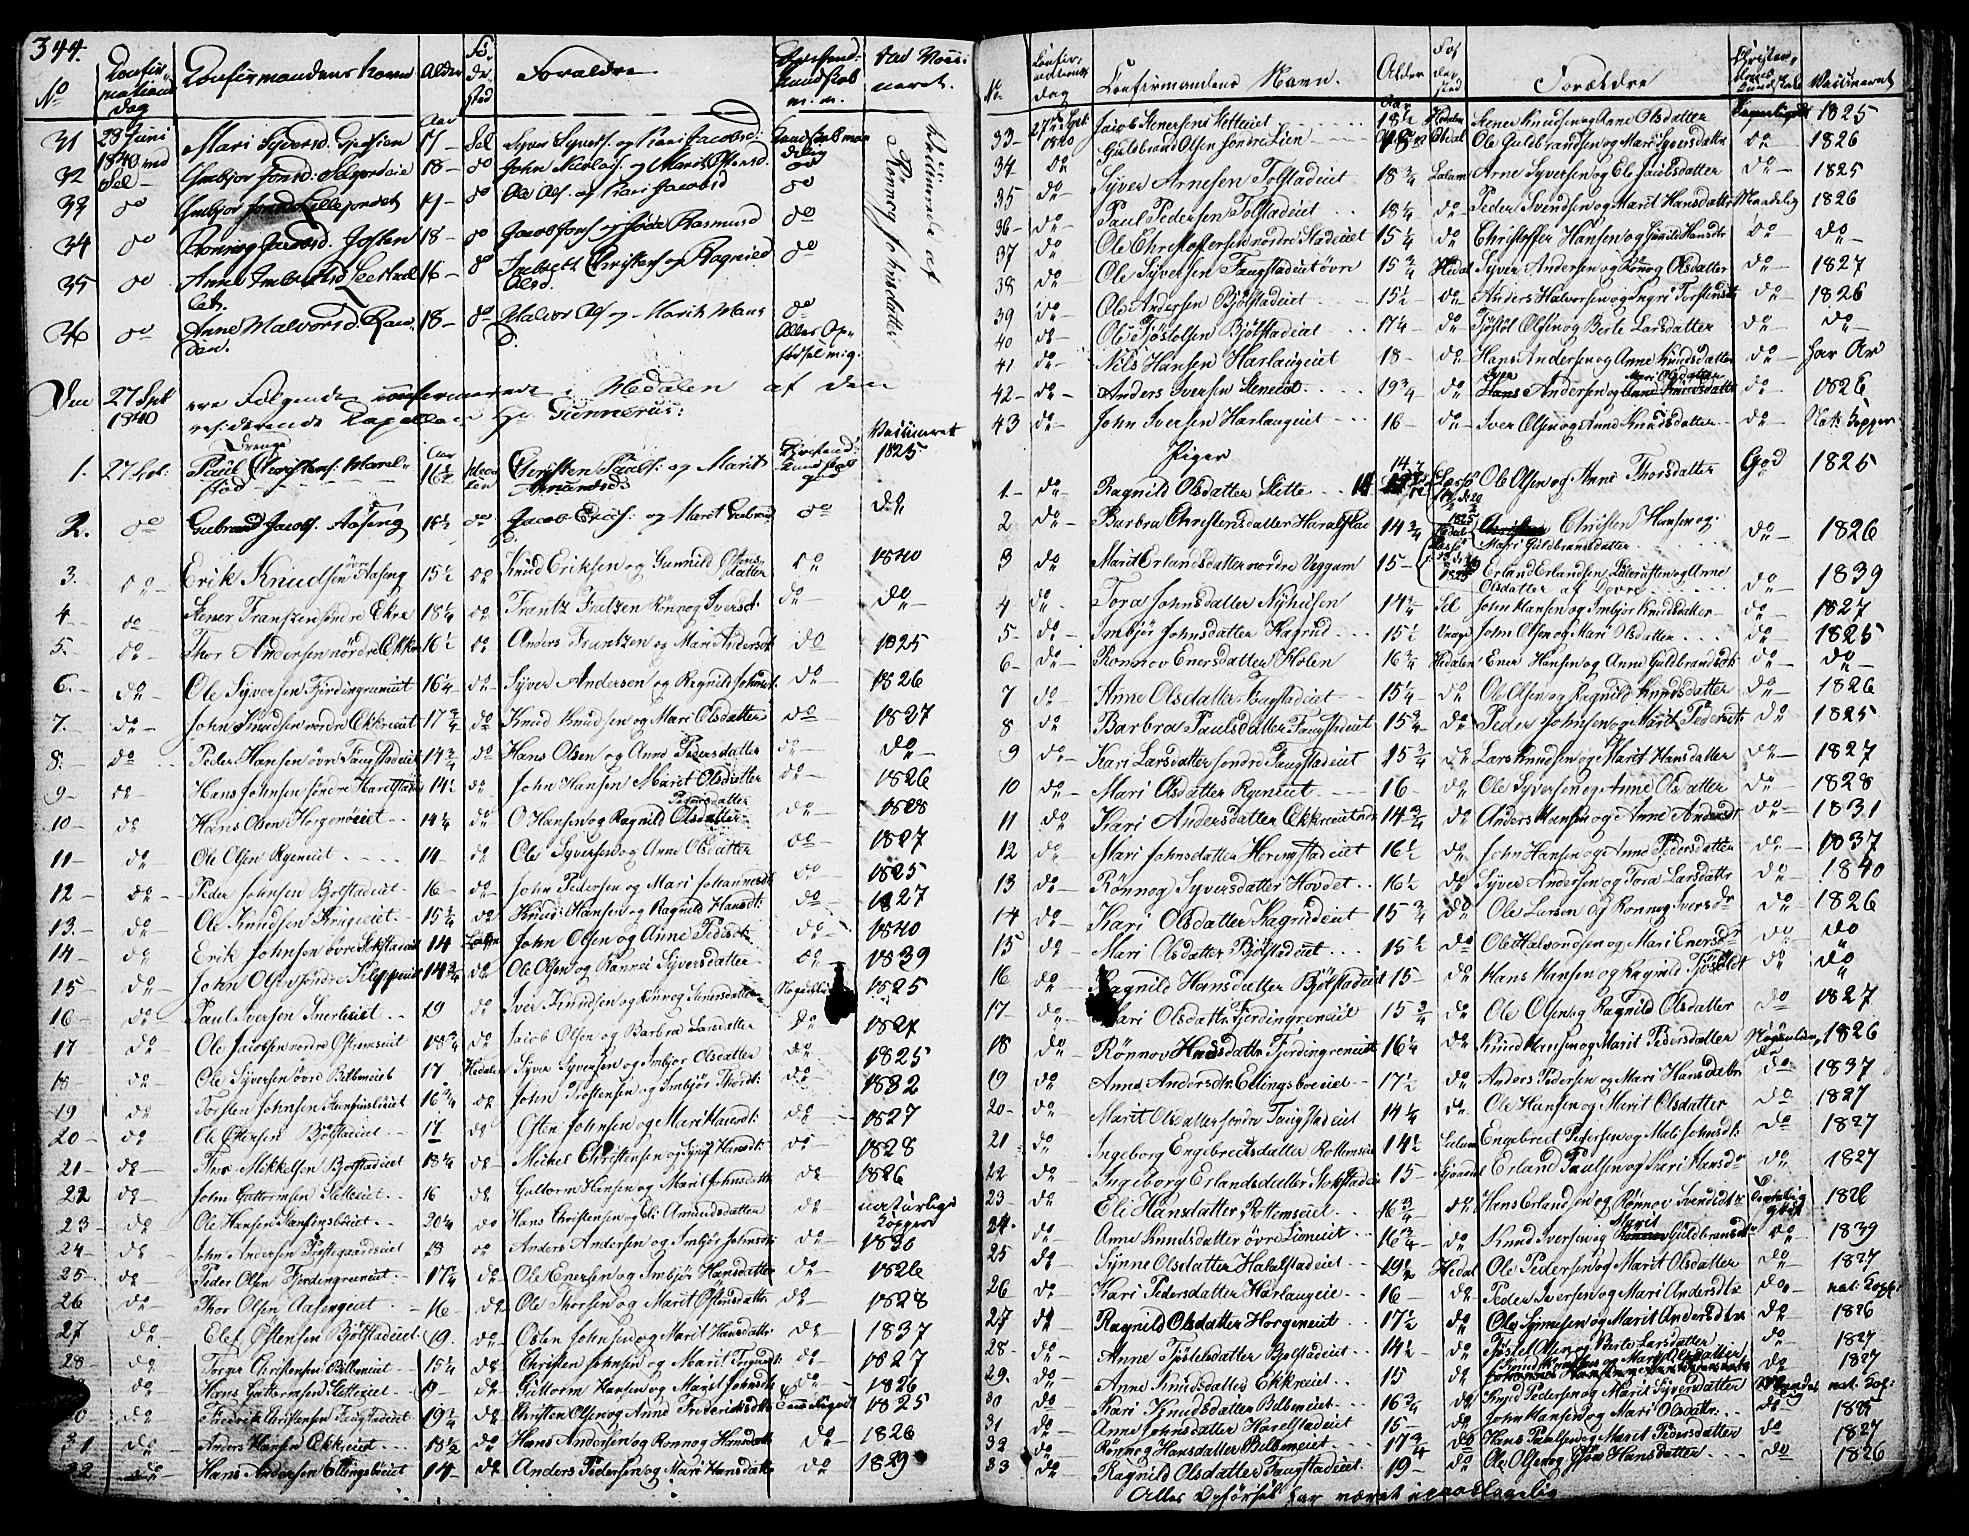 344.
No Confirmations Dag Confirmandens Navn Alder Fødested Forældre Christend: Kundskab m. m. Vaccineret
31 28 Juni 1840 ved Sel Mari Syversd. 17 Sel Syver Syvers. og Kari Jacobsd: Kundskab
32 Imbjor Jonsd. 18 do John Nicolais. og Marit Ostensd. do
33 do Imbjor 17 do Ole Ols. og Kari Jacobsd do
34 do Rønnog Jacobsd. 18 do Jacob Jons. og Rasmusd do
35 do Anne 16 do Christens. og Ragnild Olsd. do
36 do Anne Halvorsd. 18 do Halvor Ols. og Marit Hansd. do
Vaccinerede af Rønnog Johnsdatter
Den 27 Sept 1840 ere Følgende confirmerede i Hedalen af den residerende Kapellan Hr Gunnerus:
Drenge
1. 27 Sept. Paul Christens. Haralstad 16½ Hedalen Christen Pauls. og Marit Amundsd. god 1825
2. do Gulbrand Jacobs. Aaseng 15½ do Jacob Erics. og Marit do do
3. do Erik Knudsen øvre Aaseng 15½ do Knud Eriksen og Gunnild Ostensdatter do 1840
4 do Stener Frantzen søndre Ekre 18¼ do Frantz Frantzen Rønnog Iversd: do do
5. do Thor Andersen nordre Ekkre 16½ do Anders Frantzen og Mari Andersdt do 1825
6. do Ole Syversen Fjerdingreneiet 16¼ do Syver Andersen og Ragnild Johnsdt: do 1826
7. do John Knudsen nordre Ekkreeiet 17¾ do Knud Knudsen og Mari Olsdatter do 1827
8. do Peder Hansen øvre Faugstadeiet 14¾ do Hans Olsen og Anne Pedersdatter do do
9 do Hans Johnsen søndre Haralstadeie 14½ do John Hansen Marit Olsdatter do 1826
10 do Hans Olsen Horgeneiet 14¼ do O Hansen og Ragnild Pedersdatter do 1828
11 do Ole Olsen Ryeneiet 14 do Ole Syversen og Anne Olsdatter do 1827
12 do Peder Johnsen Bjølstadeiet 16 do John Pedersen og Mari Johannesdt do 1825
13. do Ole Knudsen Krugeeiet 15¼ do Knud Hansen og Ragnild Hansdt: do 1827
14 do Erik Johnsen øvre Stokstadeiet 14 John Olsen og Anne Pedersdt: do 1840
15 do John Olsen søndre 14¾ do Ole Olsen og Rannei Syversdatter do 1839
16 do Paul Iversen 19 do Iver Knudsen og Rønnog Stenersdatter 1825
17 do Ole Jacobsen nordre 18¾ do Jacob Olsen og Barbra Larsdatter do 1827
18 do Ole Syversen øvre Bilbeneiet 17 Hedalen Syver Syversen og Imbjør Olsdatter do 1825
19 do Torsten Johnsen 16¾ do John Trostensen og Imbjør Thordt: do 1832
20 do Ole Østensen Bjølstadeiet 17 do Osten Johnsen og Mari Hansdt: do 1827
21 do Thor Mikkelsen Bjølstadeiet 18¼ do Michel Christensen og Hansdt: do 1828
22 do John Guttormsen Sletteeiet 16 do Guttorm Hansen og Marit Johnsdatter do 1826
23 do Ole Hansen 20¼ do Hans Christensen og Eli Amundsdatter do naturlige Kopper
24 do John Andersen 18 do Anders Andersen og Imbjør Johnsdt: do 1830
25 do Peder Olsen Fjerdingreneiet 17¼ do Ole Enersen og Imbjør Hansdatter do 1826
26 do Thor Olsen Aasengeiet 16 do Ole Thorsen og Marit Ostensdatter do 1828
27 do Elef Østensen Bjølstadeiet 19 do Osten Johnsen og Marit Hansdatter do 1837
28 do Torger Christensen Bilbeneiet 15¼ do Christen Johnsen og Marit do 1827
do Hans Guttormsen Sletteeiet do Guttorm Hansen og Marit Johnsdt do 1826
do Fredrik Christensen Faugstadeiet 19¾ do Christen Olsen og Anne Frederiksdtr 1825
31 do Anders Hansen Ekkreeiet 18½ do Hans Andersen og Rønnog Hansdatt do 1826
32 do Hans Andersen Ellingsbøeiet 14 do Anders Pedersen og Mari Hansdatt do 1829
No Confirmationsdag Confirmandens Navn. Alder Fødested Forældre Christendoms Kundskab Vaccineret
33 27de Sept 1840 Jacob Stenersen Sletteeiet 18½ Hedalen Stener Knudsen og Anne Olsdatter 1825
34 do Guldbrand Olsen søndre Lien Hedal Ole Guldbrandsen og Mari Syversdatter do 1826
35 do Syver Arnesen Tolstadeiet 18¾ Arne Syversen og Eli Jacobsdatter do 1825
36 do Paul Pedersen Tolstadeiet 18¼ do Peder Svendsen og Marit Hansdatter Maadelig 1826
37 do Ole Christoffersen nordre Stadeiet 15¼ do Christoffer Hansen og Gunild Hansdtr do do
38 do Ole Syversen Faugstadeiet øvre 15¾ Hedal Syver Andersen og Rønnog Olsdatter do 1827
39 do Ole Andersen Bjølstadeiet 15½ do Anders Halvorsen og Ingri Torstensdt do 1826
40 do Ole Tjøstolsen Bjølstadeiet 17¼ do Tjøstøl Olsen og Berte Larsdatter do do
41 do Nils Hansen Harlaugeiet 18 do Hans Andersen og Anne Knudsdatter do har Ar
42 do Anders Iversen 19¾ do Iver Andersen og Mari Olsdatter do 1826
43 do John Iversen Harlaugeiet 16 do Iver Olsen og Anne Knudsdatter do Nat: Kopper
Piger
1 do Ragnild Olsdatter Slette Ole Olsen og Anne Thorsdatter God 1825
2 do Barbra Christensdatter Haralstad 14¾ Christen Hansen og Mari Guldbrandsdatter do 1826
3 do Marit Erlandsdatter nordre Veggum 15 Erland Erlandsen og Anne Olsdatter af Dovre do 1839
4 do Tora Johnsdatter Nyhusen 14¾ Sel John Hansen og Imbjør Knudsdatter do 1827
5 do Imbjør Johnsdatter Hagrud 15½ Vaage John Olsen og Mari Olsdatter do 1825
6 do Rønnov Enersdatter Holen 16¾ Hedalen Ener Hansen og Anne Guldbrandsdt do do
7 do Anne Olsdatter Faugstadeiet 15¼ do Ole Olsen og Ragnild Knudsdatter do 1826
8 do Barbra Paulsdatter Faugstadeiet 15¾ do Peder Johnsen og Marit Pedersdt: do 1825
9 do Kari Larsdatter søndre Faugstadeiet 15¾ do Lars Knudsen og Marit Hansdatter do 1827
10 do Mari Olsdatter Ryeneiet 16 do Ole Syversen og Anne Olsdatter do 1828
11 do Kari Andersdatter Ekkreeiet ndr 14¾ do Anders Hansen og Anne Andersdt do 1831
12 do Mari Johnsdatter Heringstadeiet 16½ do John Hansen og Anne Pedersdatter do 1837
13 do Rønnog Syversdatter Hovdet 16½ do Syver Andersen og Tora Larsdattr do 1840
14 do Kari Olsdatter Hagrudeiet 15¾ do Ole Larsen og Rønnog Iversdr do 1826
15 do Mari Olsdatter Bjølstadeiet 15½ do Ole Halvordsen og Mari Enersdr do do
16 do Ragnild Hansdatter Bjølstadeiet 15 do Hans Hansen og Ragnild Tjøstolsdt do do
17 do Mari Olsdattr. Fjerdingreneiet 15¾ do Ole Olsen og Ragnild Olsdatter do 1827
18 do Rønnov Knudsdattr Fjerdingreneiet 16¼ do Knud Hansen og Marit Pedersdatter 1826
19 do Anne Andersdtr. Ellingsbøeiet 17½ do Anders Pedersen og Mari Hansdatter do 1837
20 do Marit Olsdatter søndre Faugstadeiet 14¼ do Ole Hansen og Marit Olsdatter do 1827
21 do Ingeborg Engebreitsdatter Rottemseiet 14½ Engebreit Pedersen og Mali Johnsdt: do 1827
22 do Ingeborg Erlandsdatter Stokstadeiet 15 Erland Paulsen og Mari Hansdr do 1827
23 do Eli Hansdatter Rottemseiet 16¾ do Hans Erlandsen og Rønnov Svendsdtr 1826
24 do Anne Knudsdatter øvre Lieneiet 16¾ do Knud Iversen og Marit Guldbransdtr do 1839
25 do Synne Olsdatter Haralstadeiet 19½ Hedal Ole Pedersen og Marit Olsdatter do 1827
26 do Kari Pedersdatter Harlaugeie 16 do Peder Iversen og Mari Andersdtr do nat: Kopp:
27 do Ragnild Olsdatter Horgeneiet 17½ do Ole Simensen og Marit Andersdtr do 1826
28 do Anne Tjøstelsdatter Bjølstadeiet 14½ do Tjøstel Olsen og Berte Larsdatter do 1827
29. do Anne Knudsdatter Ekkreeiet 15 do do 1827
30 do Kari Knudsdatter Bilbeneiet 16¾ do Knud Pedersen og Marit Syversdatter nat. Kop:
31 do Anne Johnsdatter Haralstadeiet 15 do John Hansen og Mari Olsdattr. do 1825
32 do Rønnog Hansdatter Bilbeneiet 17¾ do Hans Paulsen og Marit Pedersdatter do 1827
33 do Ragnild Olsdatter Faugstadeiet 19 do Ole Olsen og Hansdatter do 1826
Alles Opførsel har været upaaklagelig